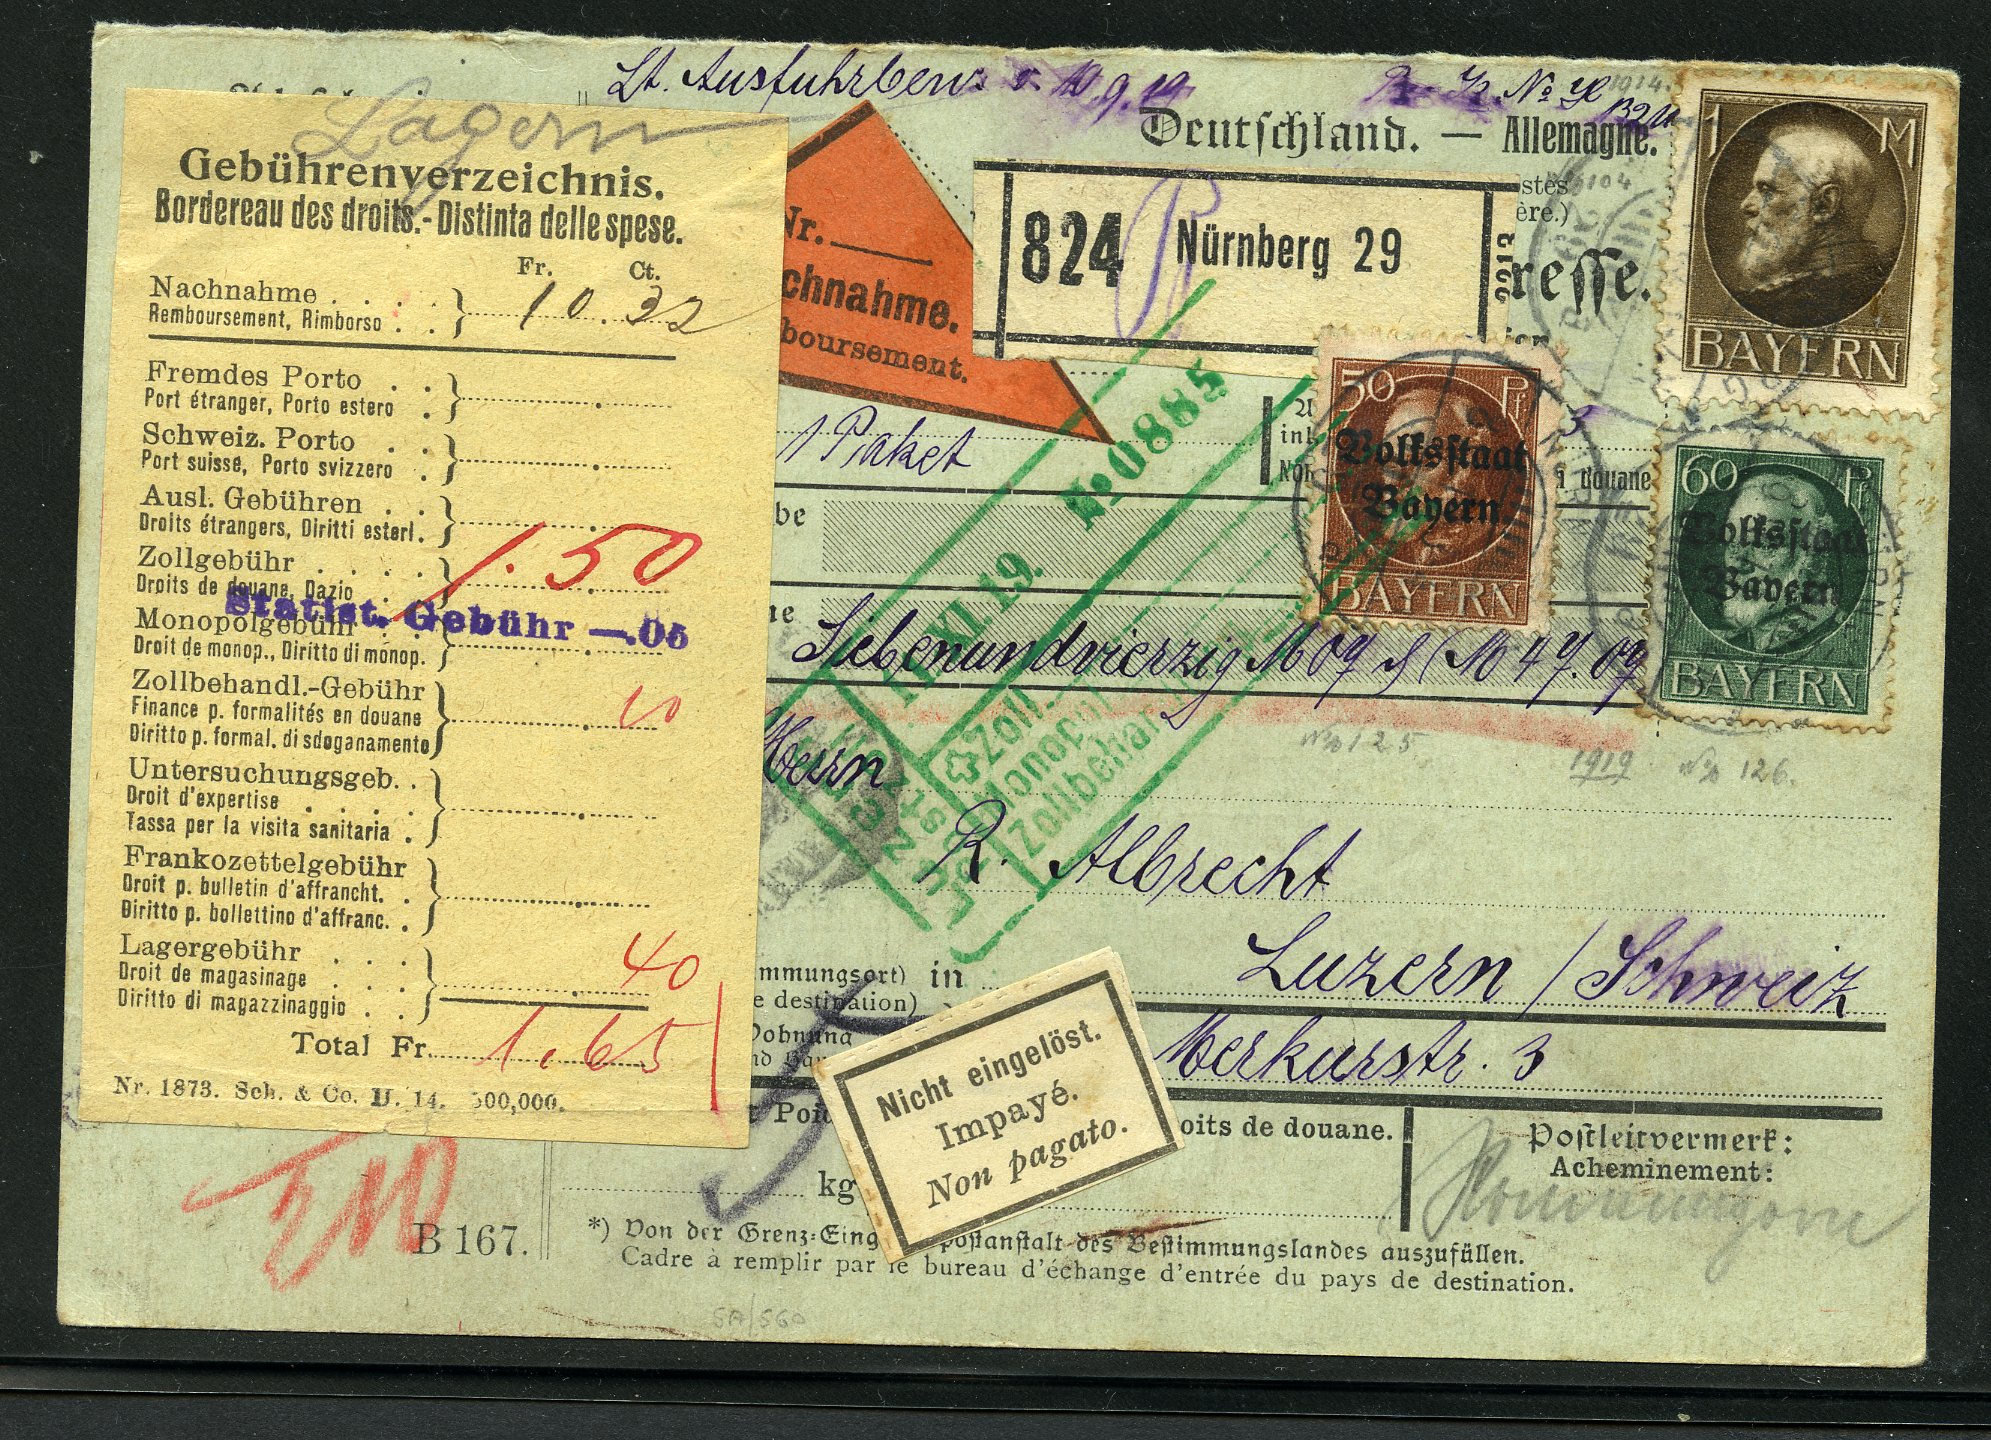 Lt. Ausfuhrbew. v. 10.9.19.
1914.
Deutschland. — Allemagne.
Lagern
Gebührenverzeichnis.
Bordereau des droits.-Distinta delle spese.
Fr. Ct.
Nachnahme . . . .
Remboursement, Rimborso . . 10.32
Fremdes Porto . .
Port étranger, Porto estero .
Schweiz. Porto . .
Port suisse, Porto svizzero .
Ausl. Gebühren . .
Droits étrangers, Diritti esteri.
Zollgebühr . . . . 1.50
Droits de douane, Dazio .
Statist. Gebühr —.05
Monopolgebühr
Droit de monop., Diritto di monop.
Zollbehandl.-Gebühr
Finance p. formalités en douane 10
Diritto p. formal. di sdoganamento
Untersuchungsgeb. .
Droit d'expertise . . . .
Tassa per la visita sanitaria .
Frankozettelgebühr
Droit p. bulletin d'affrancht. .
Diritto p. bollettino d'affranc. .
Lagergebühr . . .
Droit de magasinage . . . 40
Diritto di magazzinaggio . .
Total Fr. 1.65
Nr. 1873. Sch. & Co. II. 14. 500,000.
B 167.
Nr.
chnahme.
boursement.
824 Nürnberg 29
2912
stes
ère.)
resse.
1 M
BAYERN
50 Pf
Volksstaat
Bayern
BAYERN
60 Pf
Volksstaat
Bayern
BAYERN
1 Paket
douane
No 0885
XI. 19.
Zoll-
Monopol
Zollbehan
be
Siebenundvierzig M 09 ₰ (M 47.09
No 125.
1919 No 126.
Herrn
R. Albrecht
mmungsort) in Luzern / Schweiz
e destination)
Wohnung
Merkurstr. 3
Nicht eingelöst.
Impayé.
Non pagato.
Poid
oits de douane.
Postleitvermerk:
Acheminement:
kg
*) Von der Grenz-Eing postanstalt des Bestimmungslandes auszufüllen.
Cadre à remplir par le bureau d'échange d'entrée du pays de destination.
SA/560